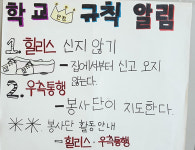 학교 규칙 알림
1. 힐리스 신지 않기
- 집에서부터 신고 오지
않는다.
2. 우측통행
- 봉사단이 지도한다.
※※ 봉사단 활동안내
- 힐리스 · 우측통행